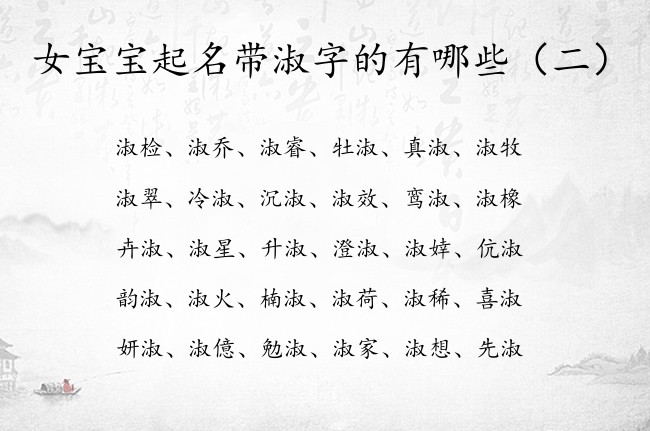 女宝宝起名带淑字的有哪些（二）
淑检、淑乔、淑睿、牡淑、真淑、淑牧
淑翠、冷淑、沉淑、淑效、鸾淑、淑橡
卉淑、淑星、升淑、澄淑、淑婞、伉淑
韵淑、淑火、楠淑、淑荷、淑稀、喜淑
妍淑、淑億、勉淑、淑家、淑想、先淑